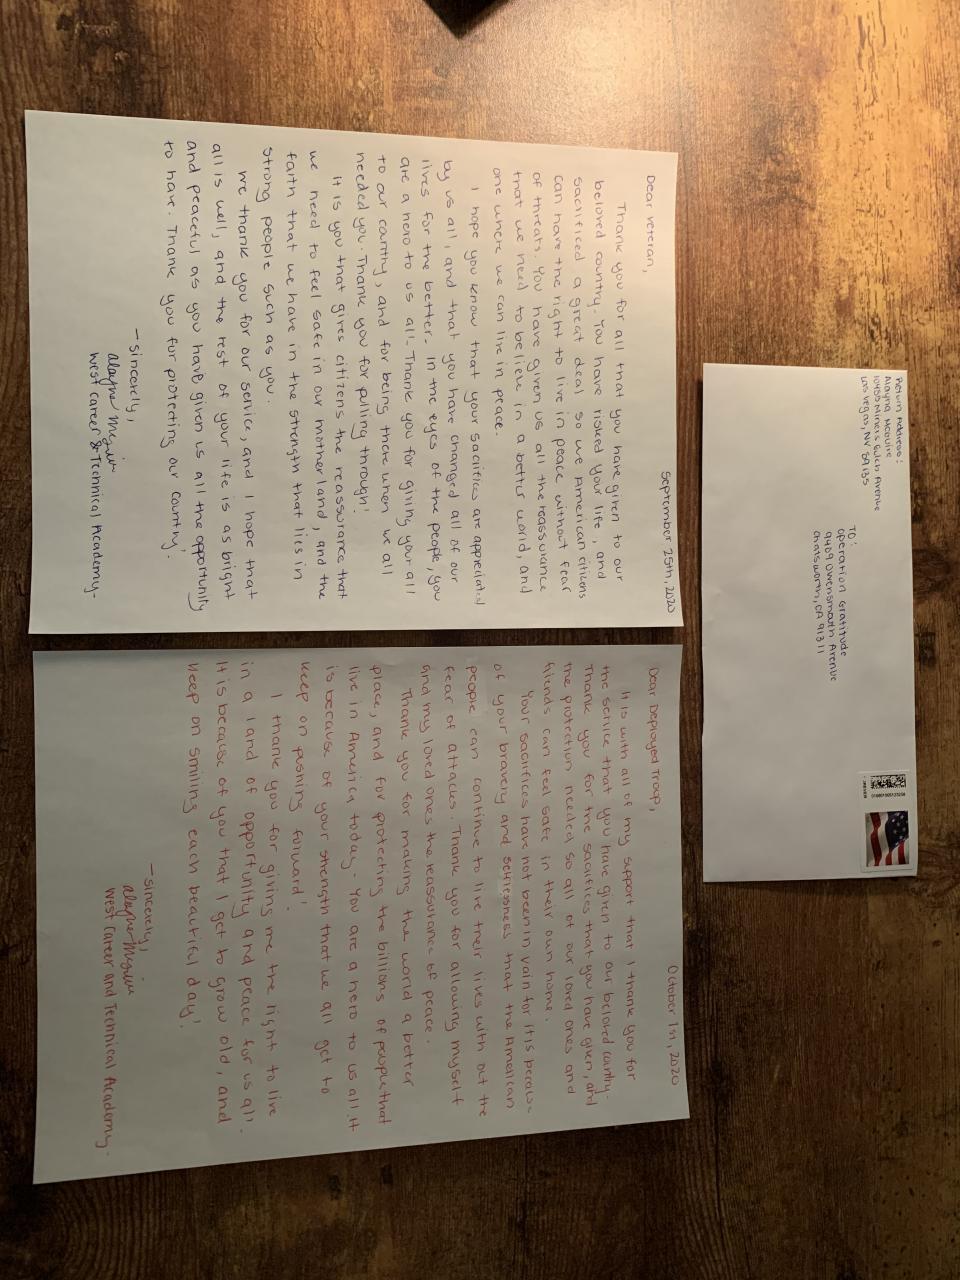 Return Address:
Alayna Mcquire
10455 Miners Gulch Avenue
Las Vegas, NV 89135
TO:
Operation Gratitude
9409 Owensmouth Avenue
Chatsworth, CA 91311
FOREVER
September 25th, 2020
Dear veteran,
Thank you for all that you have given to our
beloved country. You have risked your life, and
sacrificed a great deal so we American citizens
can have the right to live in peace without fear
of threats. You have given us all the reassurance
that we need to believe in a better world, and
one where we can live in peace.
I hope you know that your sacrifices are appreciated
by us all, and that you have changed all of our
lives for the better. In the eyes of the people, you
are a hero to us all! Thank you for giving your all
to our country, and for being there when we all
needed you. Thank you for pulling through!
It is you that gives citizens the reassurance that
we need to feel safe in our motherland, and the
faith that we have in the strength that lies in
strong people such as you.
We thank you for our service, and I hope that
all is well, and the rest of your life is as bright
and peaceful as you have given us all the opportunity
to have. Thank you for protecting our country!
-Sincerely,
West Career & Technical Academy.
October 1st, 2020
Dear Deployed Troop,
It is with all of my support that I thank you for
the service that you have given to our beloved country.
Thank you for the sacrifices that you have given, and
the protection needed so all of our loved ones and
friends can feel safe in their own home.
Your sacrifices have not been in vain for it is because
of your bravery and selflessness that the American
people can continue to live their lives with out the
fear of attacks. Thank you for allowing myself
and my loved ones the reassurance of peace.
Thank you for making the world a better
place, and for protecting the billions of people that
live in America today. You are a hero to us all. It
is because of your strength that we all get to
keep on pushing forward!
I thank you for giving me the right to live
in a land of opportunity and peace for us all.
It is because of you that I get to grow old, and
keep on smiling each beautiful day!
-Sincerely,
West Career and Technical Academy.